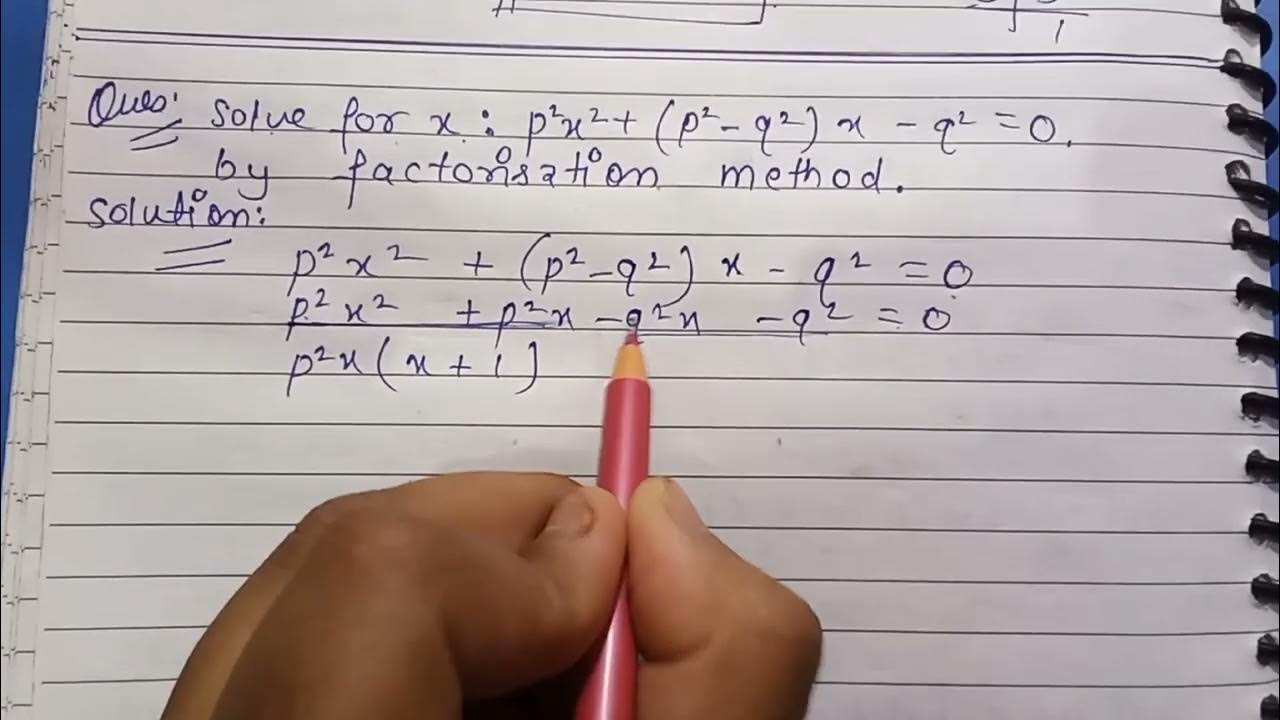 1
Ques: solve for x : p²x² + (p² - q²) x - q² = 0.
by factorisation method.
solution:
p² x² + (p² - q²) x - q² = 0
p² x² + p²x - q²x - q² = 0
p²x ( x + 1 )